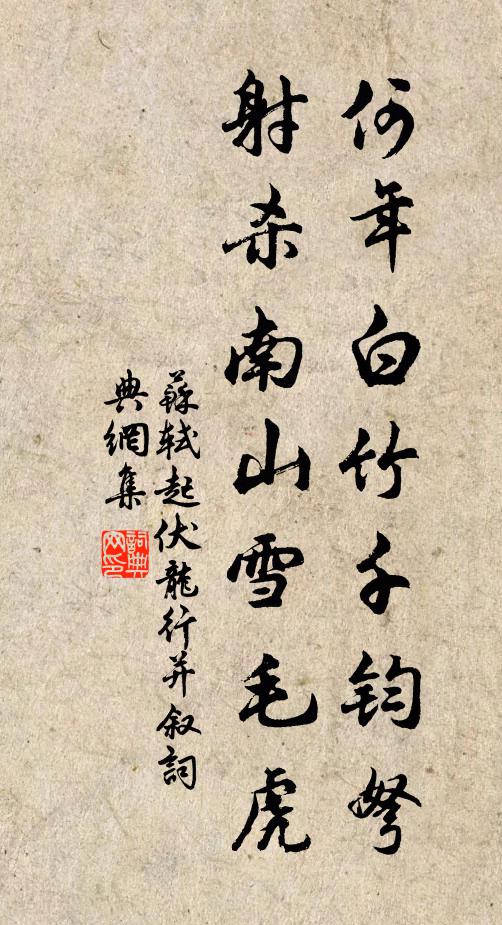 何年白竹千鈞弩
射杀南山雪毛虎
蘇軾起伏龍行并叙詞
典網集
詞典网印